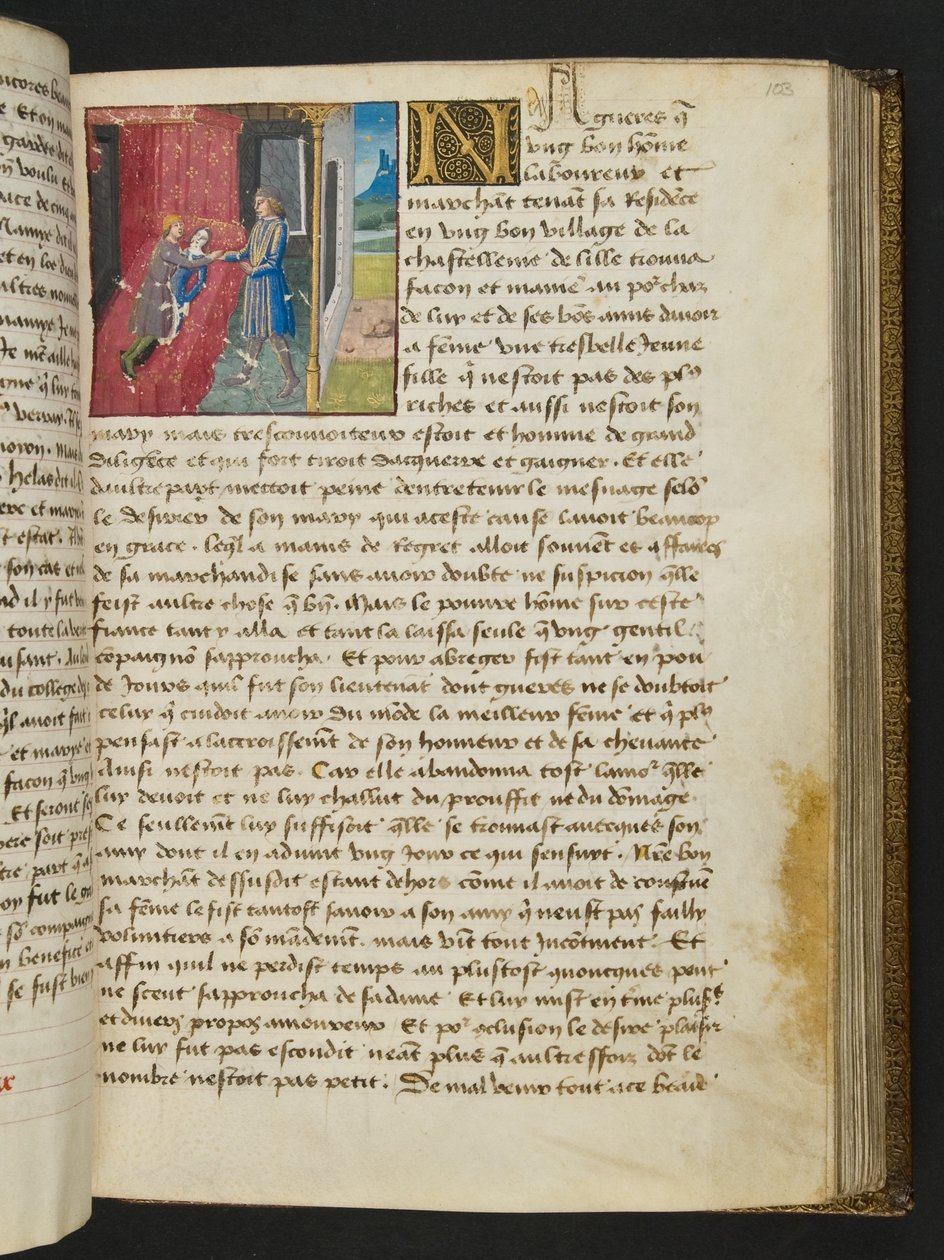 gardes dit
voulu
helas dit il
et mary
estat
son cas et
toute la
du college
quil avoit fait
et marye
facon q ung
Et seront
soit
part q
oy fut le
so compai
benefice
se fust bien
103
N Agueres q̄
vng bon hōme
laboureur et
marchāt tenāt sa Residēce
en vng bon village de la
chastellenie de lille trouua
facon et maniē au por̄chaz
de luy et de ses bōs amis dauoir
a fēme vne tresbelle Jeune
fille q̄ nestoit pas des plꝰ
riches et aussi nestoit son
mary mais tresconuoiteux estoit et homme de grand
diligēce et qui fort tiroit dacquerre et gaigner. Et elle
daultre part mettoit peine dentretenir le mesnaige selō
le desirier de son mary qui a ceste cause lauoit beaucop
en grace. leq̄l a mains de Regret alloit souuēt es affaires
de sa marchandise sans auoir doubte ne suspicion q̄lle
feist aultre chose q̄ biē. Mais le pouure hōme sur ceste
fiance tant y alla et tant la laissa seule q̄ vng gentil
cōpaignō sapproucha. Et pour abreger fist tant en pou
de Jours quil fut son lieutenāt dont gueres ne se doubtoit
celuy q̄ cuidoit auoir du mōde la meilleur fēme et q̄ plꝰ
pensast a laccroissemēt de son honneur et de sa cheuance
Ainsi nestoit pas. Car elle abandonna tost lamor̄ q̄lle
luy deuoit et ne luy challut du prouffit ne du dōmage.
Ce seullemēt luy suffisoit q̄lle se trouuast auecques son
amy dont il en aduint vng Jour ce qui sensuyt. Nr̄e bon
marchāt dessusdit estant dehors cōme il auoit de coustume
sa fēme le fist tantost sauoir a son amy q̄ neust pas failly
voluntiers a sō mādemēt. mais vīt tout Incōtinent. Et
affin quil ne perdist temps au plustost quoncques peut
ne sceut sapproucha de sa dame Et luy mist en t̄me pluss̄
et diuers propos amoureux. Et por̄ ꝯclusion le desire plaisir
ne luy fut pas escondit neāt plus q̄ aultres ffoiz dōt le
nombre nestoit pas petit. De mal venir tout a ce beau